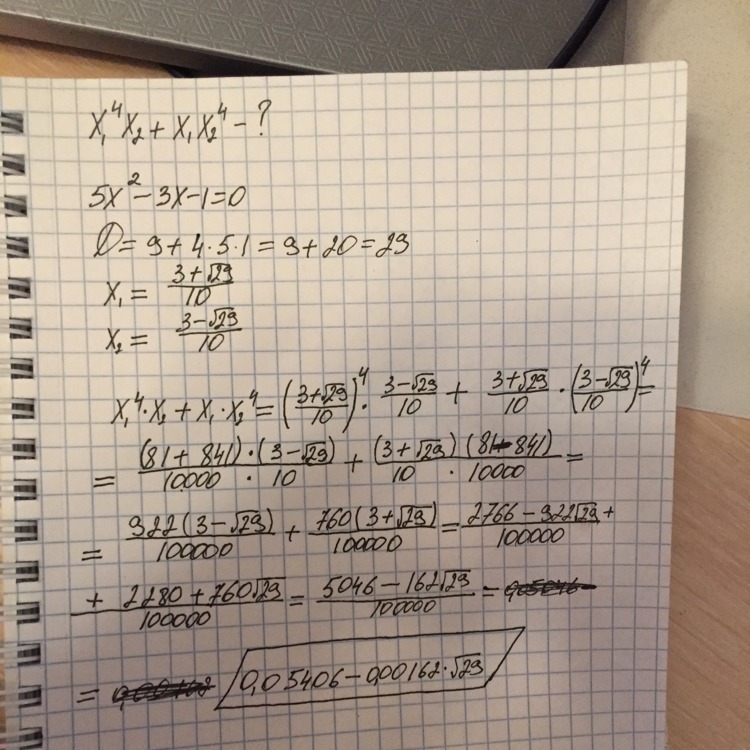 x₁⁴x₂ + x₁x₂⁴ - ?
5x² - 3x - 1 = 0
D = 9 + 4·5·1 = 9 + 20 = 29
x₁ = (3+√29)/10
x₂ = (3-√29)/10
x₁⁴·x₂ + x₁·x₂⁴ = ((3+√29)/10)⁴ · (3-√29)/10 + (3+√29)/10 · ((3-√29)/10)⁴ =
= (81 + 841)·(3-√29)/(10000·10) + (3+√29)(81-841)/(10·10000) =
= 922(3-√29)/100000 + 760(3+√29)/100000 = (2766 - 922√29 +)/100000
(+ 2280 + 760√29)/100000 = (5046 - 162√29)/100000 =
= 0,05406 - 0,00162·√29